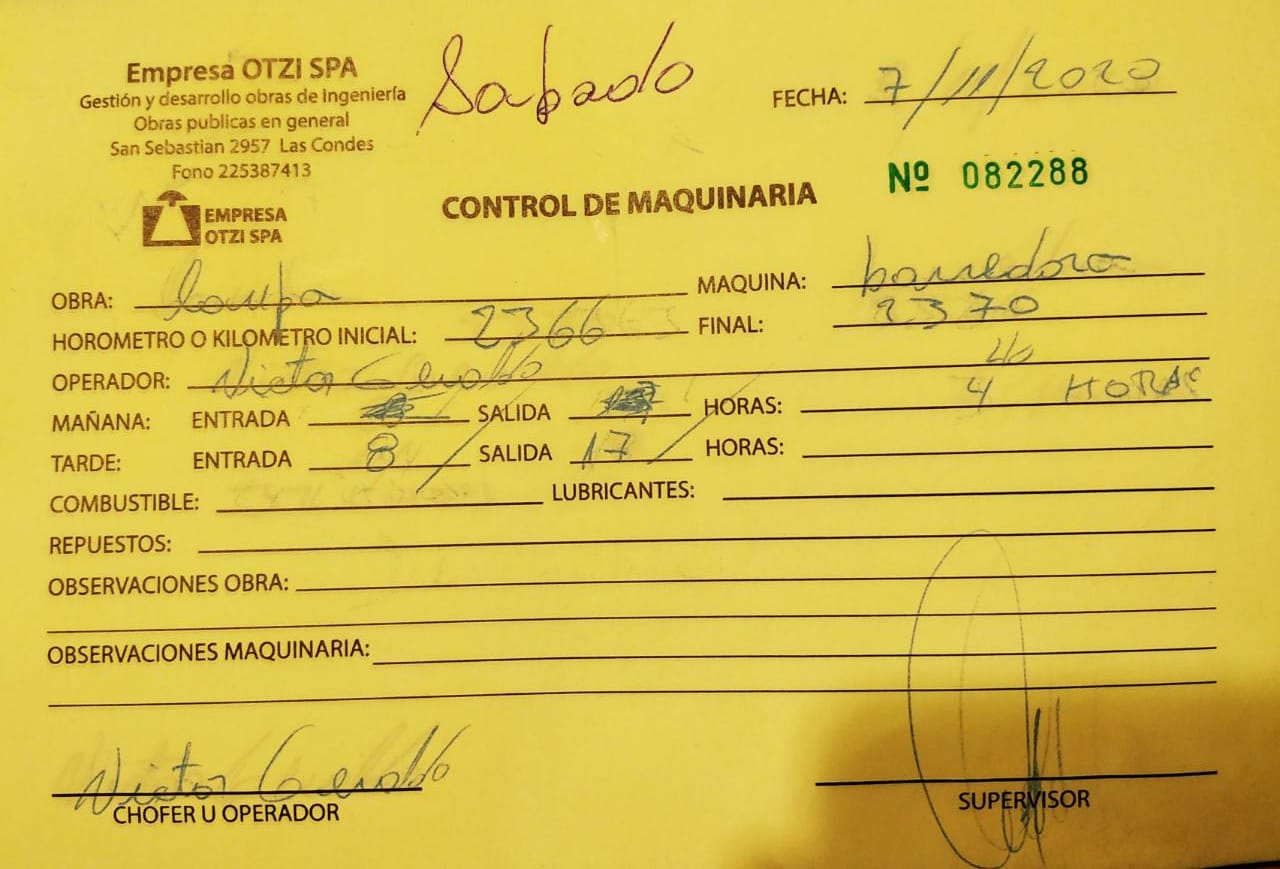 Empresa OTZI SPA
Gestión y desarrollo obras de Ingeniería
Obras publicas en general
San Sebastian 2957 Las Condes
Fono 225387413
EMPRESA
OTZI SPA
Sabado
FECHA: 7/11/2020
Nº 082288
CONTROL DE MAQUINARIA
OBRA: MAQUINA: barredora
HOROMETRO O KILOMETRO INICIAL: 2366 FINAL: 2370
OPERADOR: Victor
MAÑANA: ENTRADA SALIDA HORAS: 4 HORAS
TARDE: ENTRADA 8 SALIDA 17 HORAS:
COMBUSTIBLE: LUBRICANTES:
REPUESTOS:
OBSERVACIONES OBRA:
OBSERVACIONES MAQUINARIA:
Victor
CHOFER U OPERADOR
SUPERVISOR